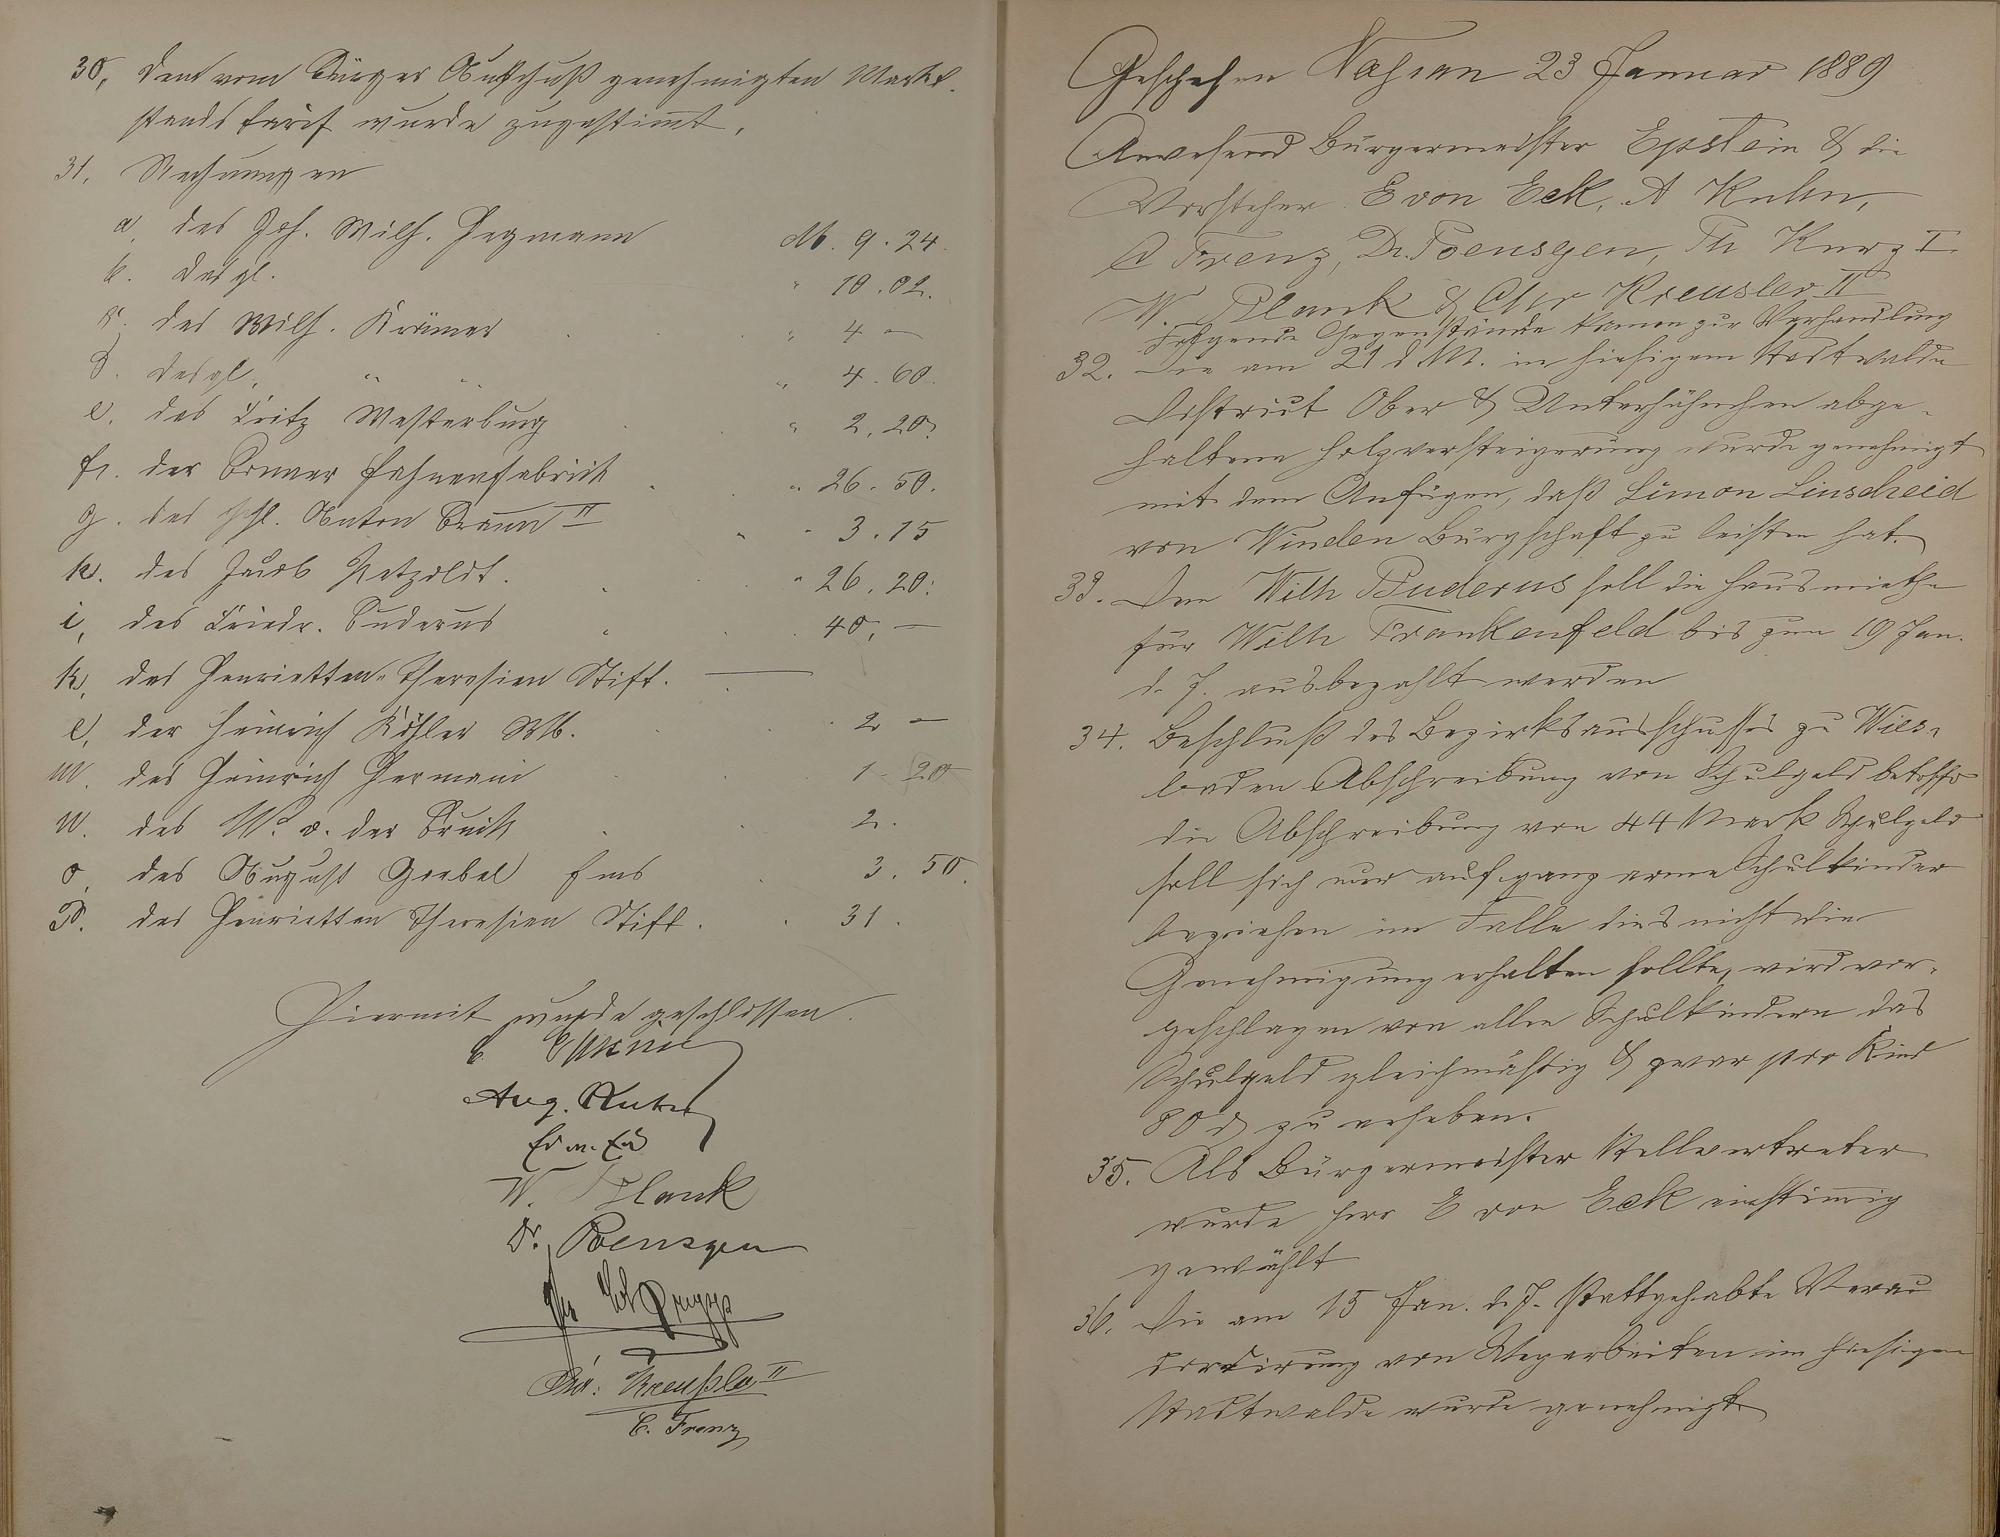 30, Dem vom Bürger Ausschuß genehmigten Markt-
standstarif wurde zugestimmt,
31. Rechnungen
a, des Joh. Wilh. Hegmann M. 9. 24.
b. desgl. " 10. 02.
c. des Wilh. Krämer " 4 —
d. desgl. " " " 4. 60.
e, des Fritz Westerburg " 2, 20.
f. der Bonner Fahnenfabrick " 26. 50.
g. des Phil. Anton Braun III " 3. 15
h. des Jacob Petzoldt. " 26, 20.
i, des Friedr. Buderus 40, —
k, des Henrietten-Theresien Stift. —
l, der Heinrich Köhler Wb. 2 —
m. des Heinrich Germain 1. 20
n. des Wm v. der Bruck 2.
o, des August Goebel Ems 3. 50.
p. des Henrietten Theresien Stift. 31.
Hiermit wurde geschlossen.
E. Epstein
Aug. Kuhn
Ed v. Eck
W. Plank
Dr. Poensgen
Chr. Kreußler II
C. Frenz
Geschehen Nassau 23 Januar 1889
Anwesend Bürgermeister Epstein & die
Vorsteher E von Eck, A Kuhn,
C Frenz, Dr. Poensgen, Th Kurz I
W. Plank & Chr Kreusler II
Folgende Gegenstände kamen zur Verhandlung
32. Die am 21 d M. in hiesigem Stadtwalde
District Ober & Unterhähnchen abge-
haltene Holzversteigerung wurde genehmigt
mit dem Anfügen, daß Simon Linscheid
von Winden Bürgschaft zu leisten hat.
33. Dem Wilh Buderus soll die Hausmiethe
für Wilh Frankenfeld bis zum 19 Jan.
d. J. ausbezahlt werden
34. Beschluß des Bezirksausschusses zu Wies-
baden Abschreibung von Schulgeld betreffd
die Abschreibung von 44 Mark Schulgeld
soll sich nur auf ganz arme Schulkinder
beziehen im Falle dies nicht die
Genehmigung erhalten sollte, wird vor-
geschlagen von allen Schulkindern das
Schulgeld gleichmäßig & zwar pro Kind
80 ₰ zu erheben.
35. Als Bürgermeister Stellvertreter
wurde Herr E von Eck einstimmig
gewählt
36. Die am 15 Jan. d. J. stattgehabte Verac
cordirung von Wegarbeiten im hiesigen
Stadtwalde wurde genehmigt